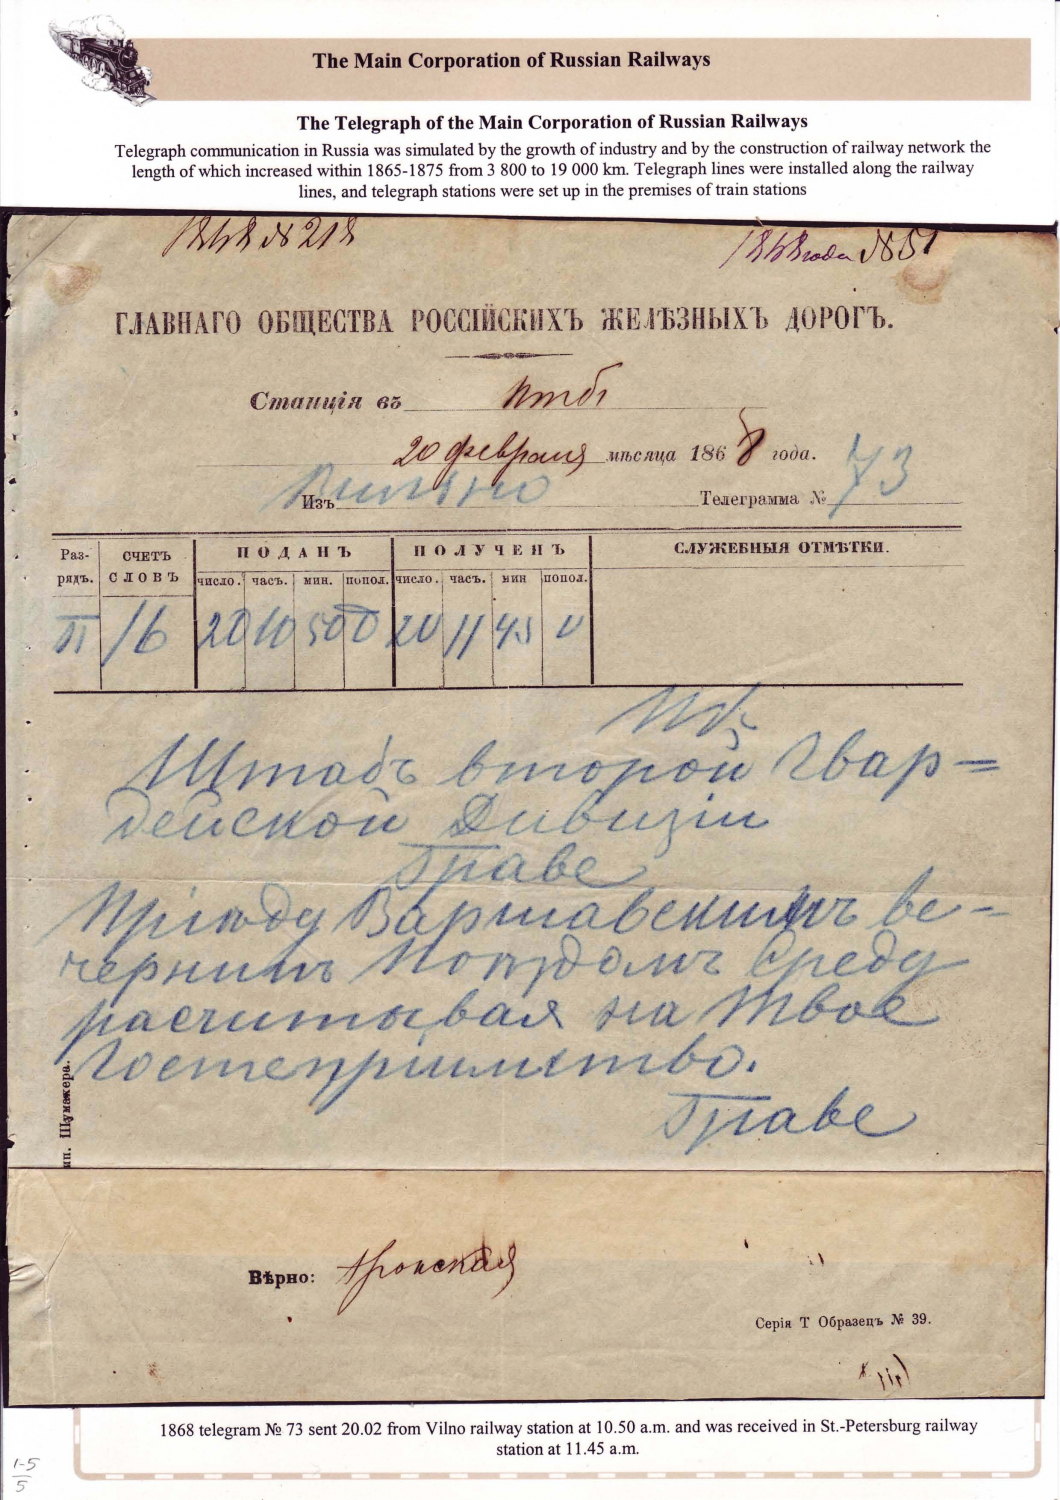 The Main Corporation of Russian Railways
The Telegraph of the Main Corporation of Russian Railways
Telegraph communication in Russia was simulated by the growth of industry and by the construction of railway network the
length of which increased within 1865-1875 from 3 800 to 19 000 km. Telegraph lines were installed along the railway
lines, and telegraph stations were set up in the premises of train stations
1868 № 218
1868 года № 51
ГЛАВНАГО ОБЩЕСТВА РОССІЙСКИХЪ ЖЕЛѢЗНЫХЪ ДОРОГЪ.
Станція въ Птбг
20 февраля мѣсяца 1868 года.
Изъ Вильно Телеграмма № 73
Раз-рядъ. СЧЕТЪ СЛОВЪ ПОДАНЪ ПОЛУЧЕНЪ СЛУЖЕБНЫЯ ОТМѢТКИ.
число. часъ. мин. попол. число. часъ. мин попол.
П 16 20 10 50 0 20 11 45 0
Штабъ второй Гвар=
дейской Дивизіи
Граве
Пріѣду Варшавскимъ ве-
чернимъ Поѣздомъ Среду
расчитывая на Твое
Гостепріимство.
Граве
ип. Шумахера.
Вѣрно:
Серія Т Образецъ № 39.
1868 telegram № 73 sent 20.02 from Vilno railway station at 10.50 a.m. and was received in St.-Petersburg railway
station at 11.45 a.m.
1-5
5